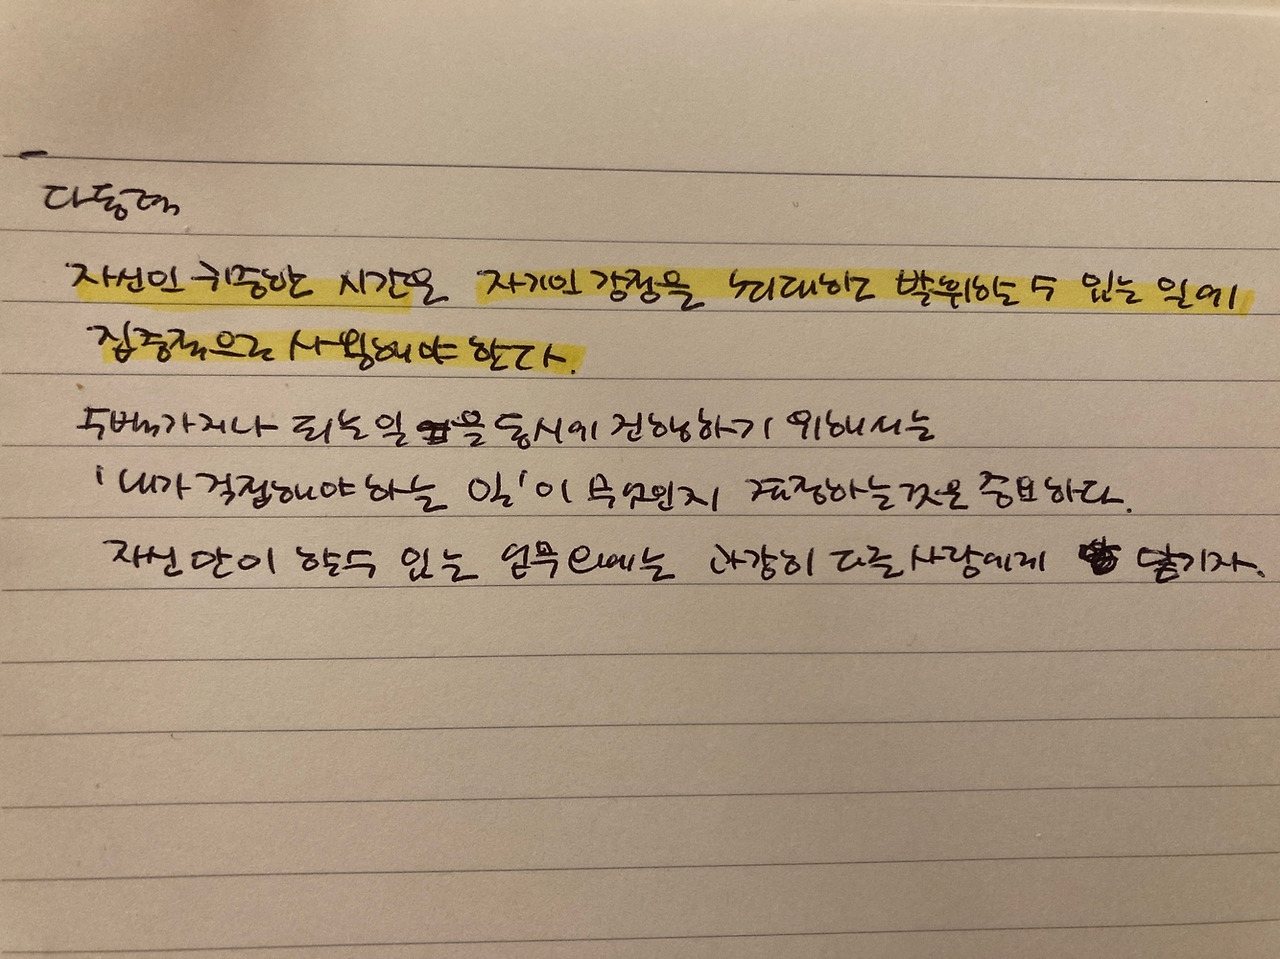 다동력
자신의 귀중한 시간은 자기의 강점을 최대한으로 발휘할 수 있는 일에
집중적으로 사용해야 한다.
수백가지나 되는 일을 동시에 진행하기 위해서는
'내가 직접해야 하는 일'이 무엇인지 결정하는 것은 중요하다.
자신만이 할 수 있는 업무 외에는 과감히 다른 사람에게 맡기자.